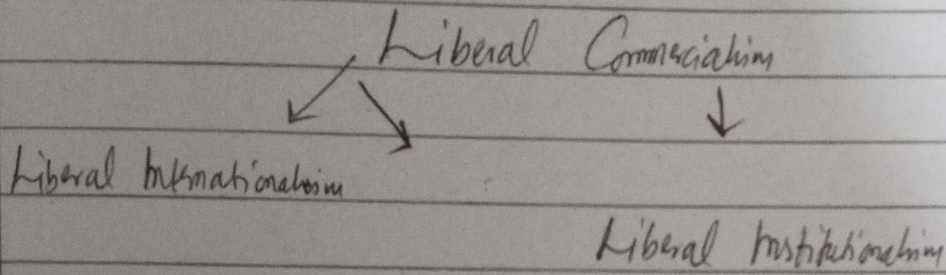 Liberal Commercialism
Liberal Internationalism
Liberal Institutionalism